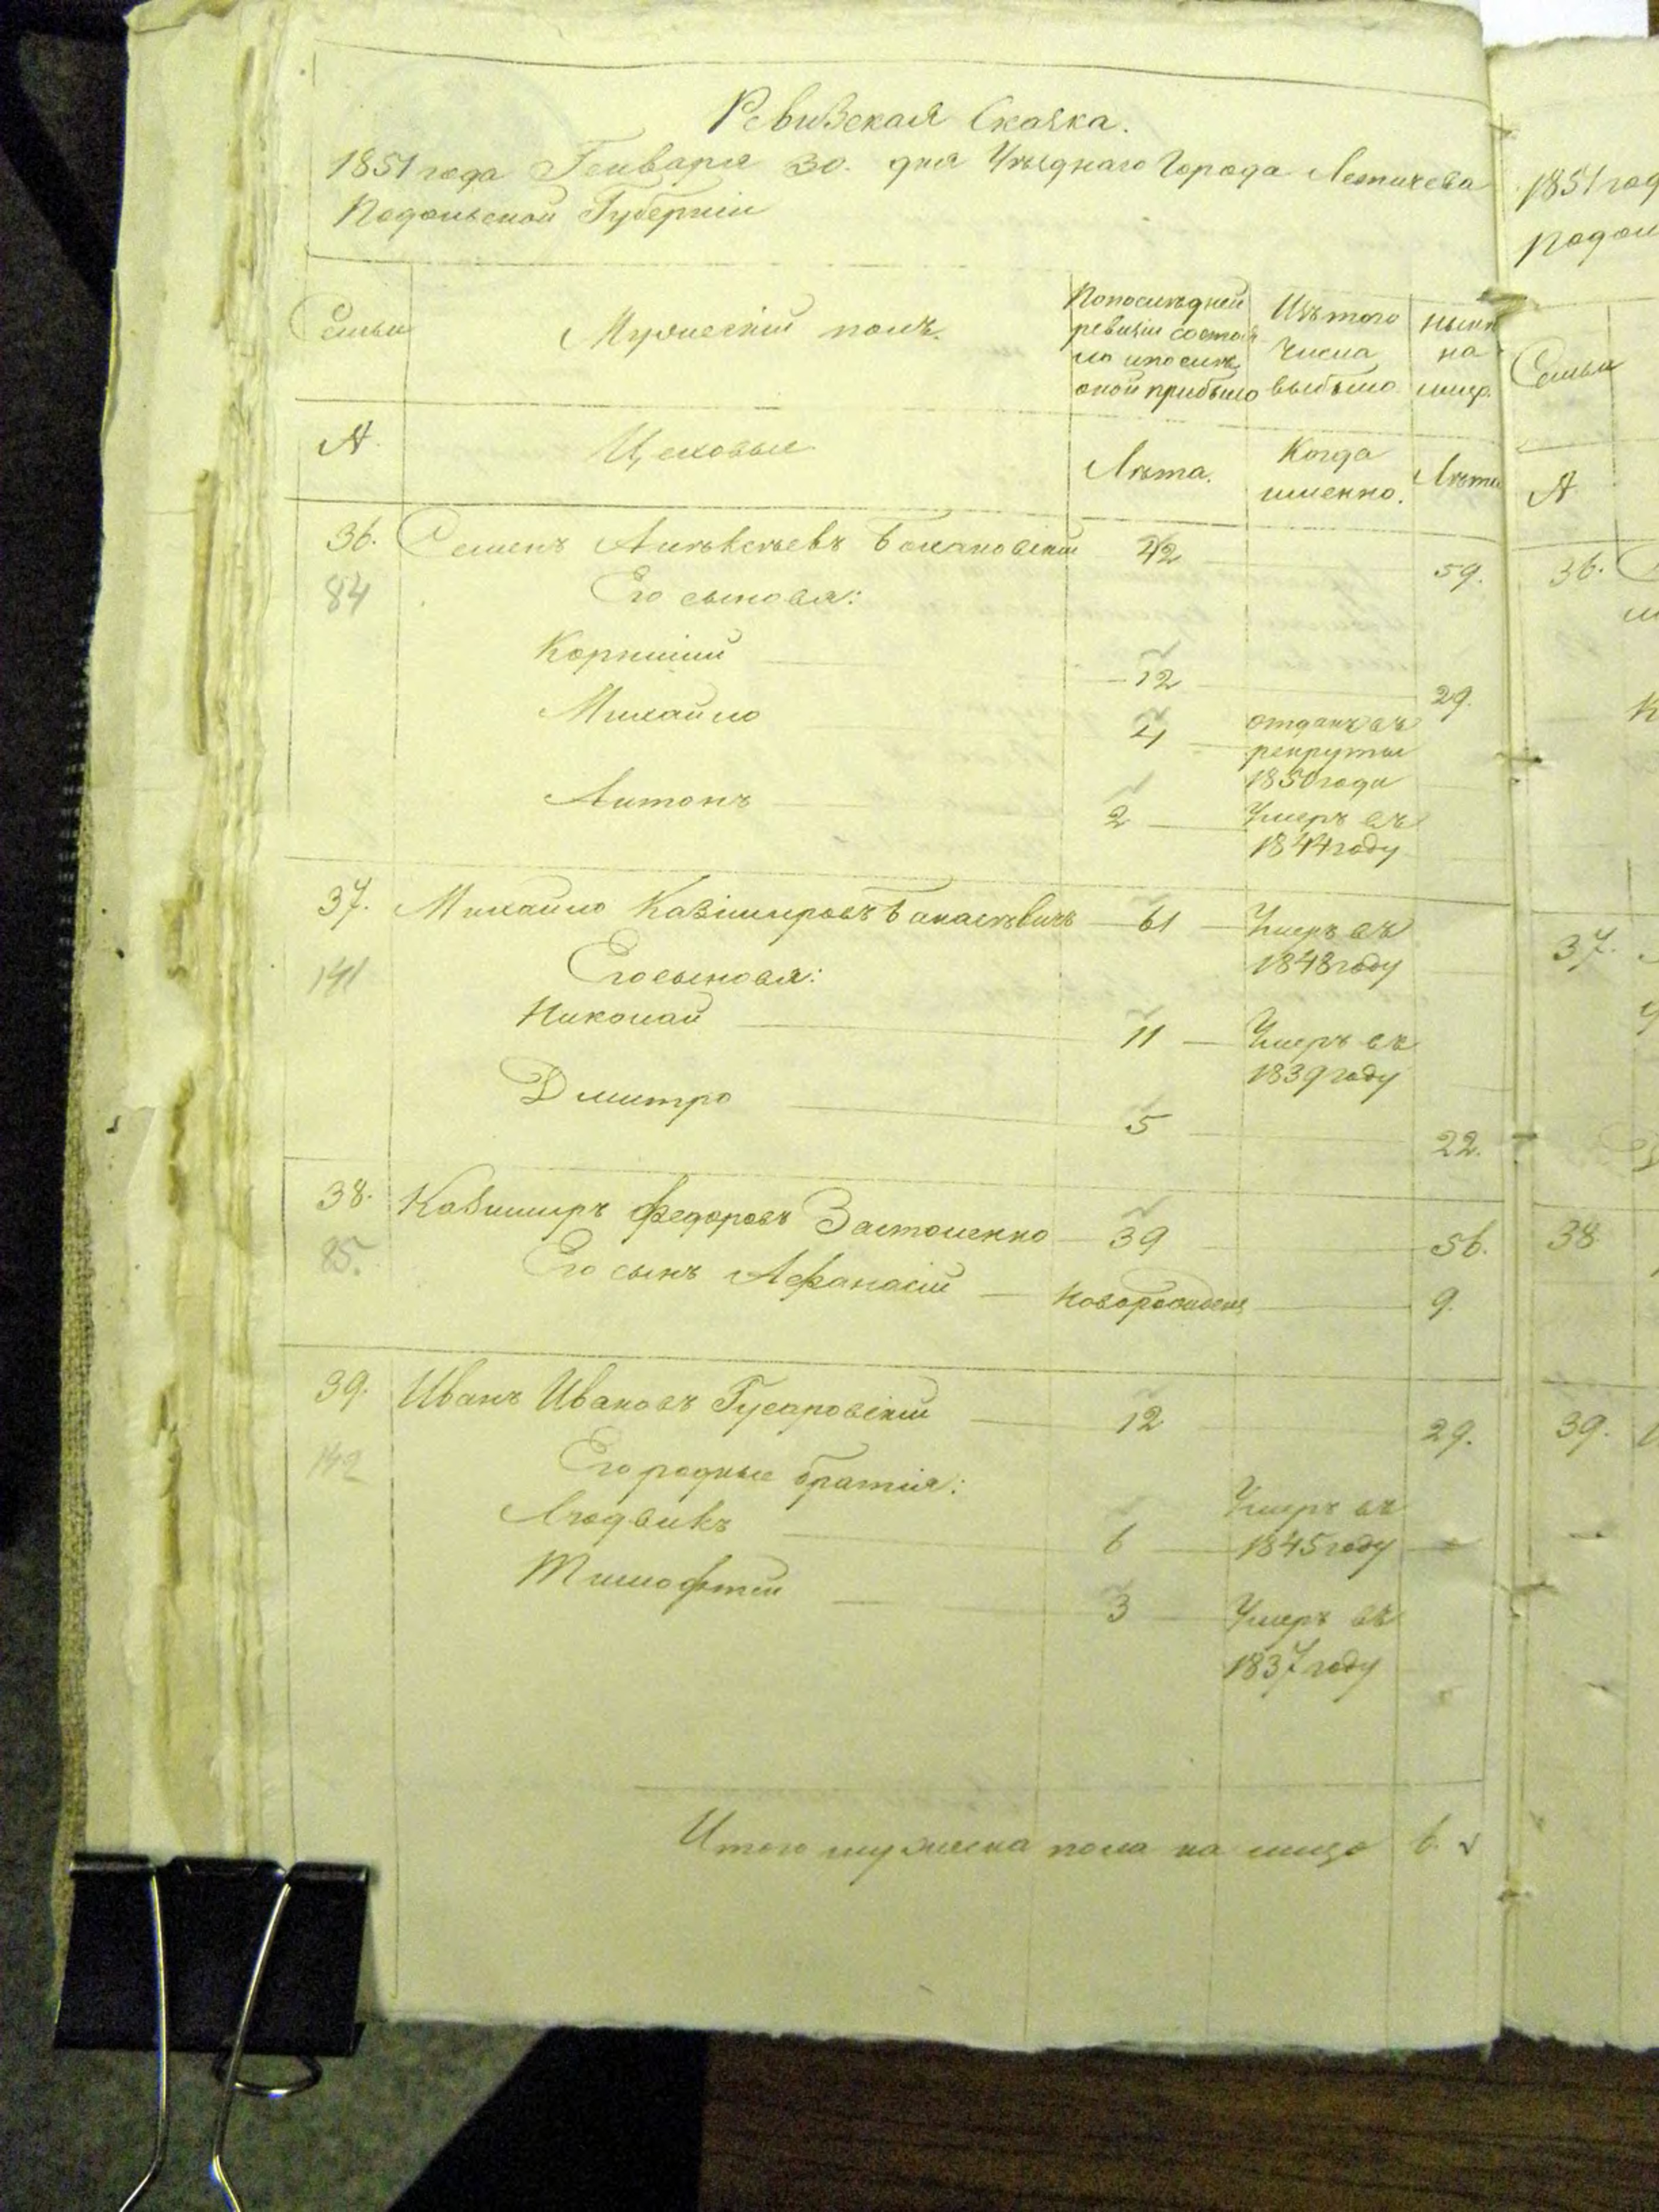 Ревизская Сказка.
1851 года Генваря 30. дня Уѣзднаго Города Летичева
Подольской Губерніи
Семьи
Мужескій полъ.
По послѣдней ревизіи состояло и послѣ оной прибыло
Изъ того числа выбыло
нынѣ на лицо.
№.
Цеховые
Лѣта.
Когда именно.
Лѣта
36. Семенъ Алексѣевъ 42 59.
84 Его сыновья:
Корнилій 12 29.
Михайло 4 отданъ въ рекруты 1850 года
Антонъ 2 Умеръ въ 1844 году
37. Михайло Казимировъ 61 Умеръ въ 1848 году
141 Его сыновья:
Николай 11 Умеръ въ 1839 году
Дмитро 5 22.
38. Казимиръ Федоровъ 39 56.
85. Его сынъ Афанасій новорожденъ 9.
39. Иванъ Ивановъ Гусаровскій 12 29.
142 Его родные братья:
Людвикъ 6 Умеръ въ 1845 году
Тимофтей 3 Умеръ въ 1837 году
Итого мужеска пола на лицо 6.
1851 год
Подол
Семьи
№
36.
37.
38
39.